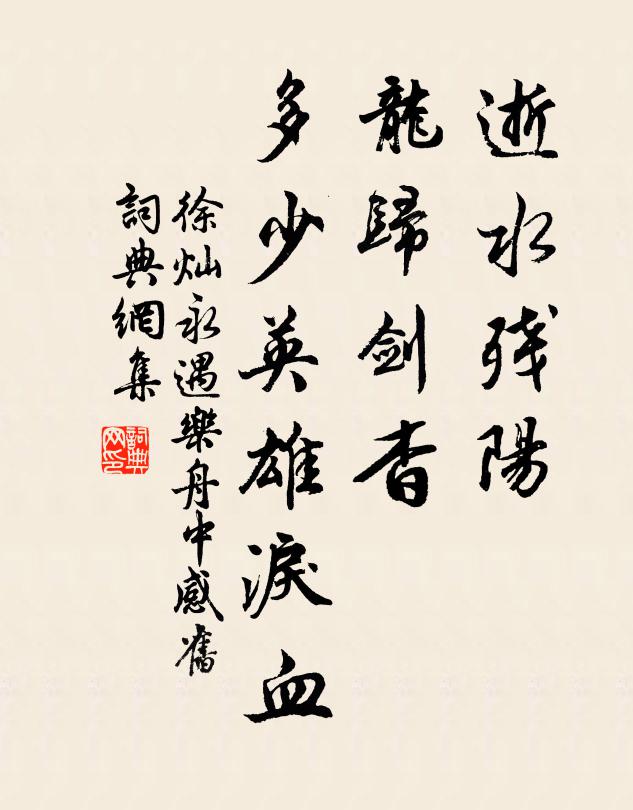 逝水残陽
龍歸剑杳
多少英雄淚血
徐灿永遇樂舟中感舊
詞典網集
詞典网印